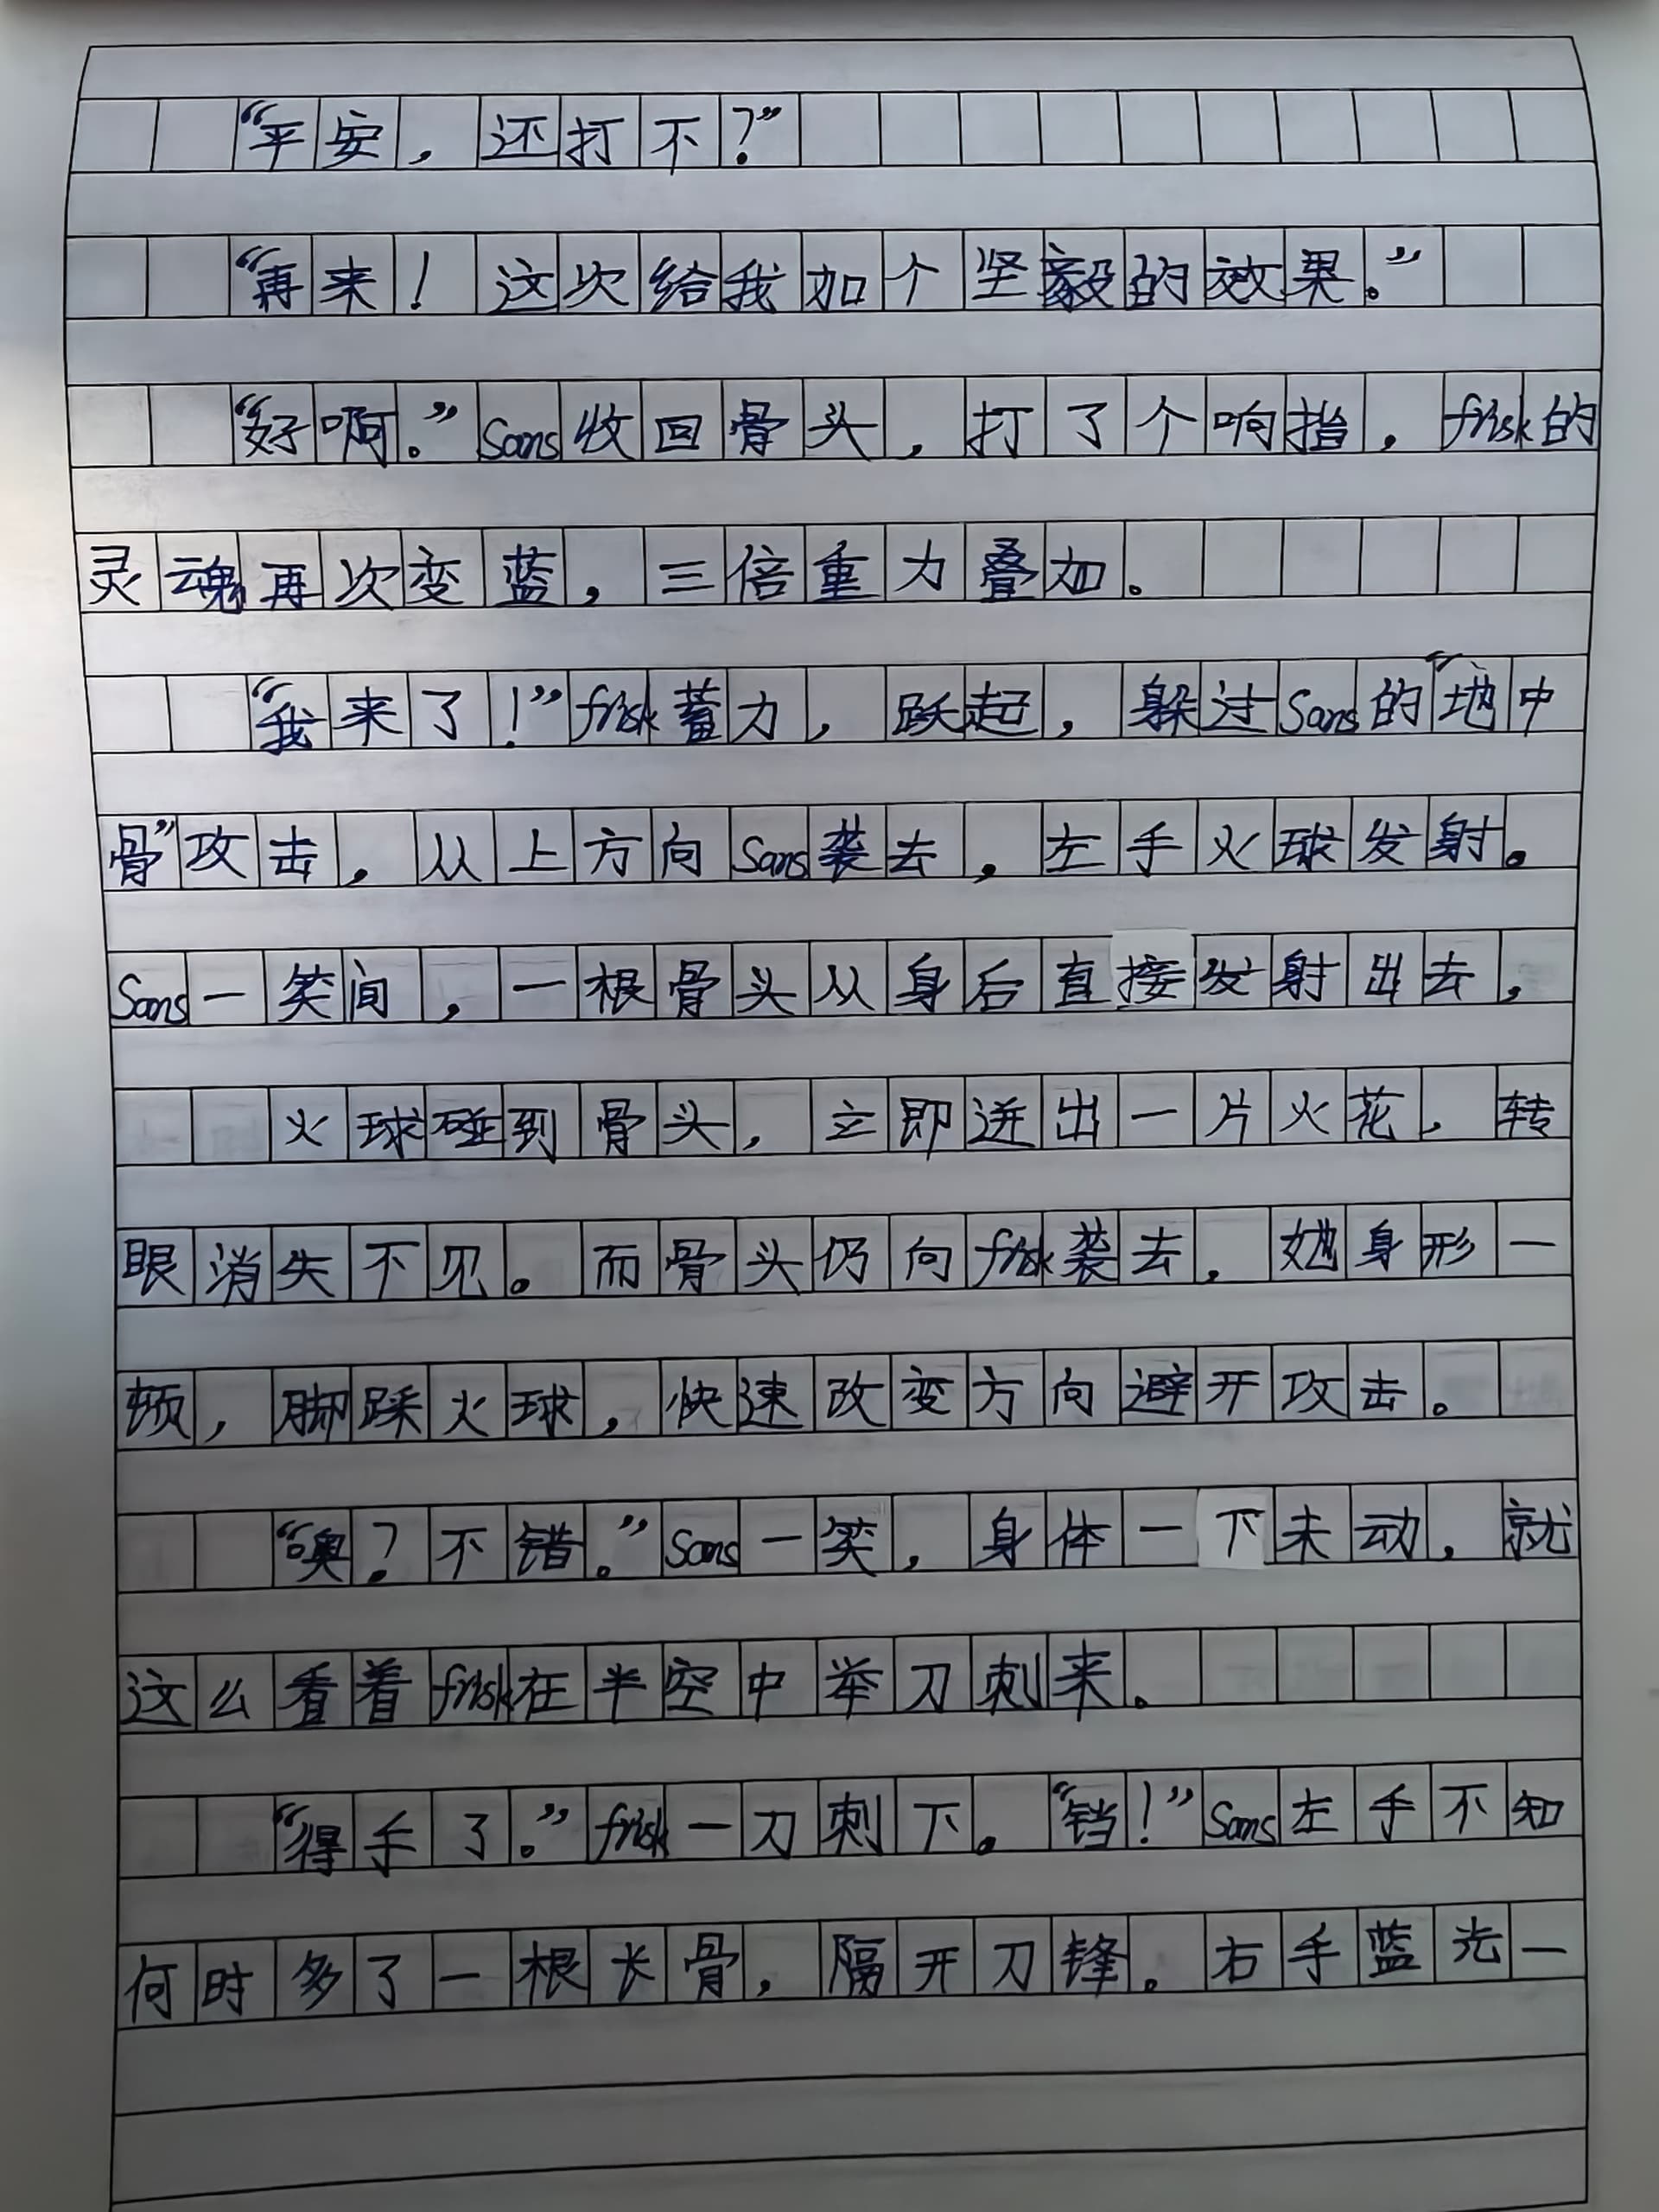 “平安，还打不？”
“再来！这次给我加个坚毅的效果。”
“好啊。”Sans收回骨头，打了个响指，frisk的
灵魂再次变蓝，三倍重力叠加。
“我来了！”frisk蓄力，跃起，躲过Sans的“地中
骨”攻击，从上方向Sans袭去，左手火球发射。
Sans一笑间，一根骨头从身后直接发射出去，
火球碰到骨头，立即迸出一片火花，转
眼消失不见。而骨头仍向frisk袭去，她身形一
顿，脚踩火球，快速改变方向避开攻击。
“噢？不错。”Sans一笑，身体一下未动，就
这么看着frisk在半空中举刀刺来。
“得手了。”frisk一刀刺下。“铛！”Sans左手不知
何时多了一根长骨，隔开刀锋。右手蓝光一